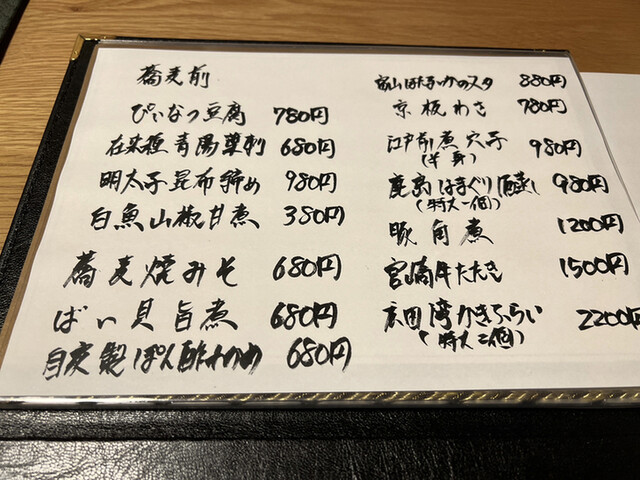 蕎麦前
ぴぃなつ豆腐 780円
在来種青陽蒟刺 680円
明太子昆布締め 980円
白魚山椒甘煮 380円
蕎麦焼みそ 680円
ばい貝旨煮 680円
自家製ぽん酢わかめ 680円
富山ほたるいかのヌタ 880円
京板わさ 780円
江戸前煮穴子 980円
(半身)
鹿島はまぐり酒蒸し 980円
(特大一個)
豚角煮 1200円
宮崎牛たたき 1500円
広田湾かきふらい 2200円
(特大二個)